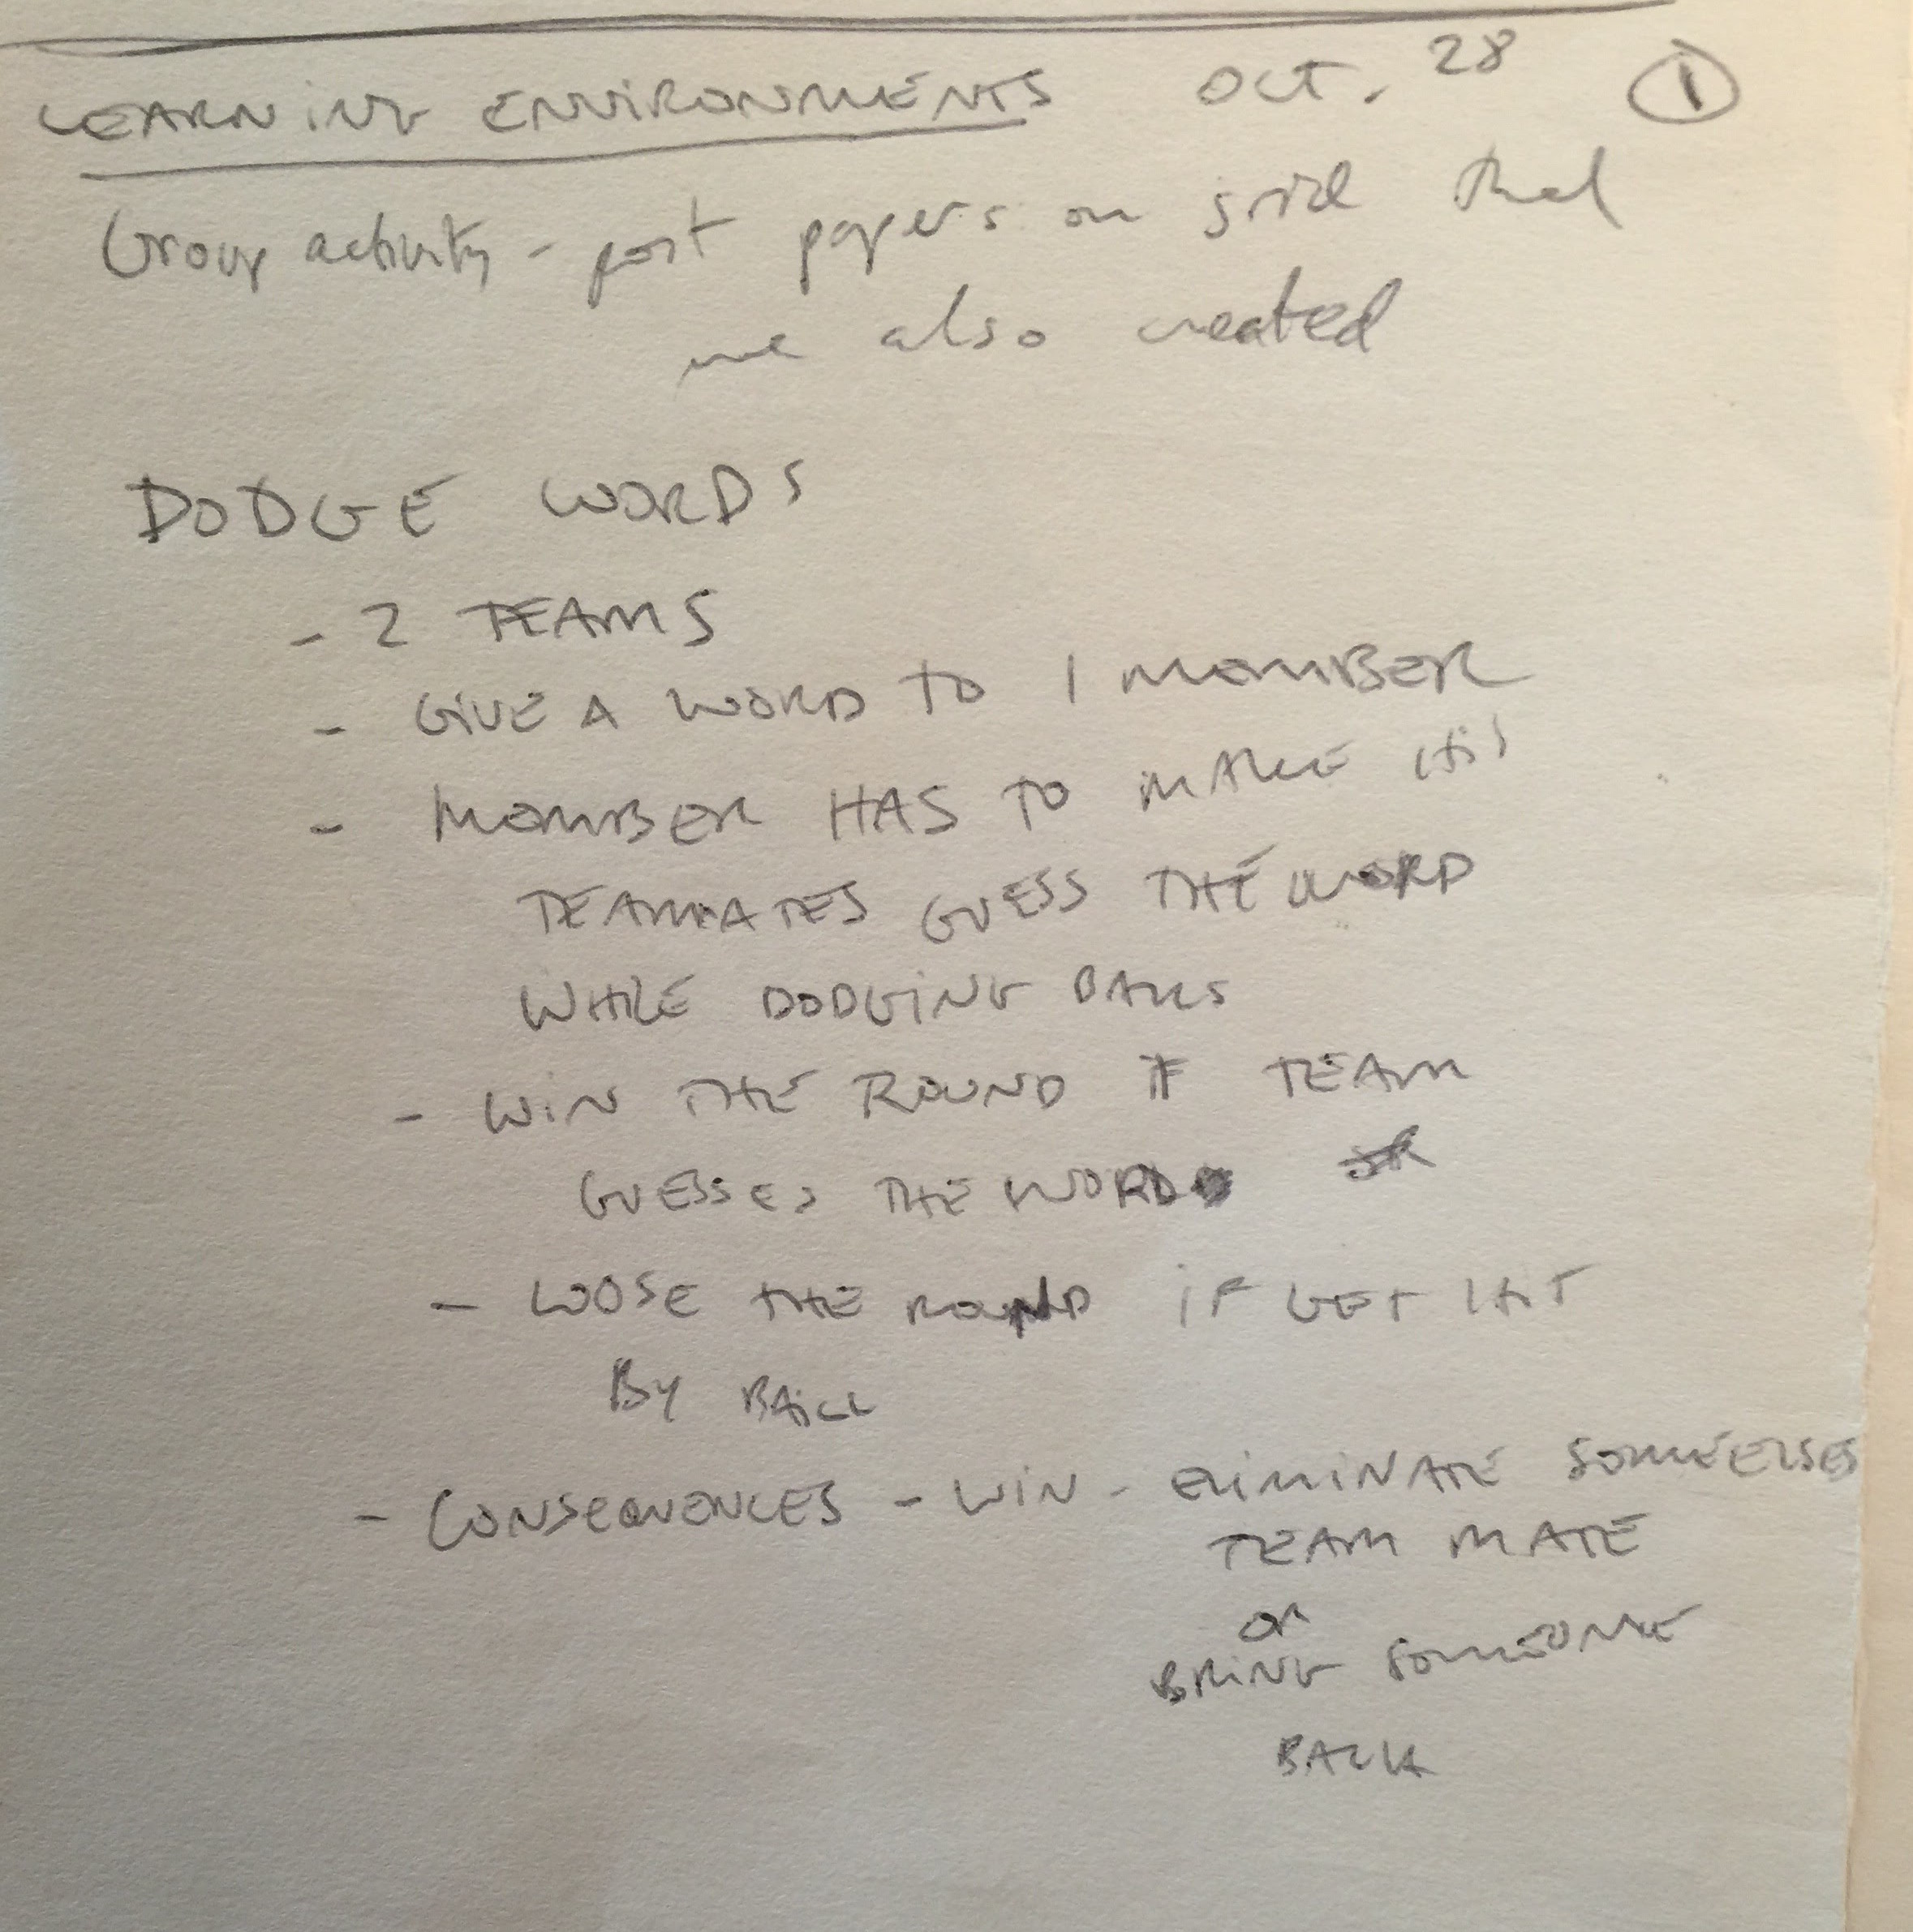 LEARNING ENVIRONMENTS OCT. 28 ①
Group activity - post papers on grid that
we also created
DODGE WORDS
- 2 TEAMS
- GIVE A WORD TO 1 MEMBER
- MEMBER HAS TO MAKE HIS
TEAMMATES GUESS THE WORD
WHILE DODGING BALLS
- WIN THE ROUND IF TEAM
GUESSES THE WORD
- LOOSE THE ROUND IF GET HIT
BY BALL
- CONSEQUENCES - WIN - ELIMINATE SOMEELSES
TEAM MATE
OR
BRING SOMEONE
BACK